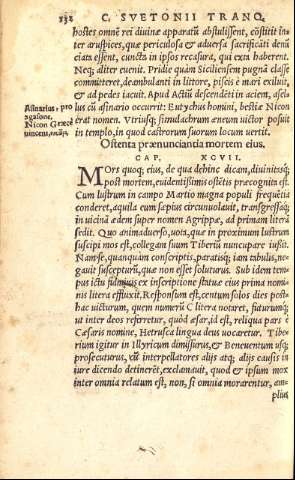 132 C. SVETONII TRANQ.
hostes omnē rei diuinæ apparatū abstulissent, cōstitit in
ter aruspices, quæ periculosa & aduersa sacrificāti denū
ciata essent, cuncta in ipsos recasura, qui exta haberent.
Neq; aliter euenit. Pridie quàm Siciliensem pugnā classe
committeret, deambulanti in littore, piscis è mari exiluit,
& ad pedes iacuit. Apud Actiū descendēti in aciem, asel-
lus cū asinario occurrit: Eutychus homini, bestiæ Nicon
erat nomen. Vtriusq; simulachrum æneum uictor posuit
in templo, in quod castrorum suorum locum vertit.
Asinarius, pro
agasone.
Nicon Græcè
uincens,
Ostenta prænunciantia mortem eius.
CAP. XCVII.
MOrs quoq; eius, de qua dehinc dicam, diuinitasq;
post mortem, euidentißimis ostētis præcognita est.
Cum lustrum in campo Martio magna populi frequētia
conderet, aquila eum sæpius circumuolauit, transgressaq;
in uicinā ædem super nomen Agrippæ, ad primam literā
sedit. Quo animaduerso, uota, quæ in proximum lustrum
suscipi mos est, collegam suum Tiberiū nuncupare iußit.
Nam se, quanquam conscriptis, paratisq; iam tabulis, ne-
gauit suscepturū, quæ non esset soluturus. Sub idem tem-
pus ictu fulminis ex inscriptione statuæ eius prima nomi-
nis litera effluxit. Responsum est, centum solos dies post-
hac uicturum, quem numerū C litera notaret, futurumq;
ut inter deos referretur, quod æsar, id est, reliqua pars è
Cæsaris nomine, Hetrusca lingua deus uocaretur. Tibe-
rium igitur in Illyricum dimissurus, & Beneuentum usq;
prosecuturus, cū interpellatores alijs atq; alijs causis in
iure dicendo detinerēt, exclamauit, quod & ipsum mox
inter omnia relatum est, non, si omnia morarentur, am-
plius